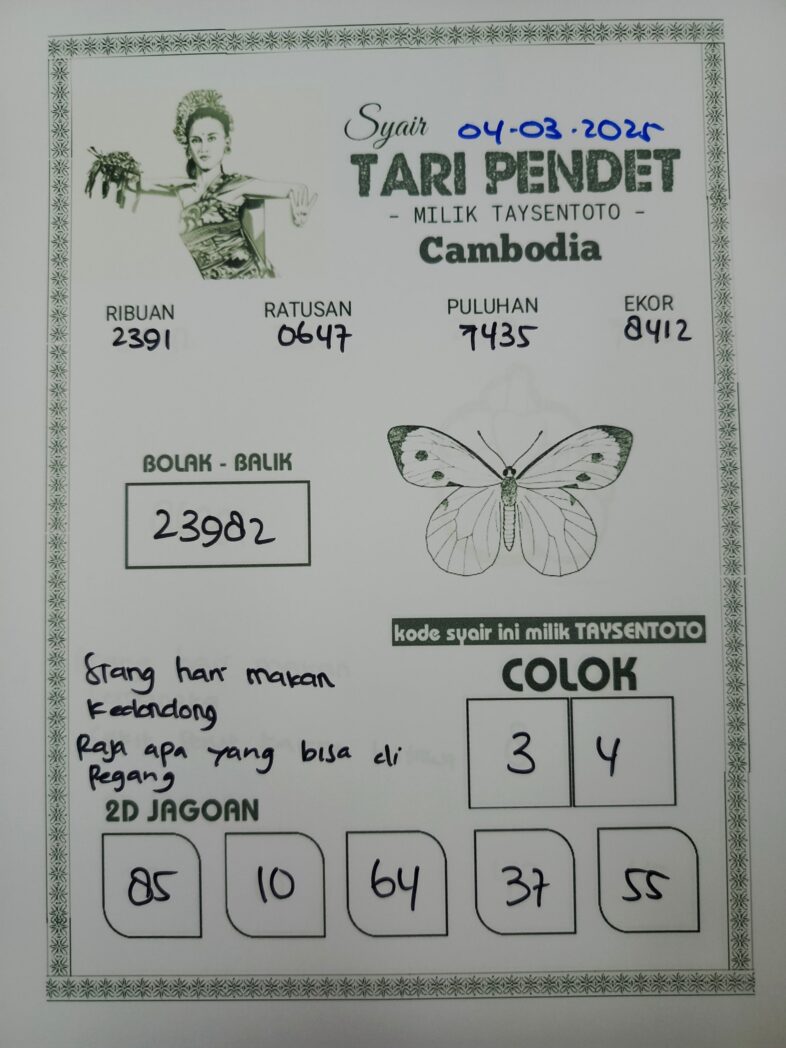 Syair 04-03-2025
TARI PENDET
- MILIK TAYSENTOTO -
Cambodia
RIBUAN RATUSAN PULUHAN EKOR
2391 0647 7435 8412
BOLAK - BALIK
23982
kode syair ini milik TAYSENTOTO
COLOK
3 4
Siang hari makan
Kedondong
Raja apa yang bisa di
Pegang
2D JAGOAN
85 10 64 37 55